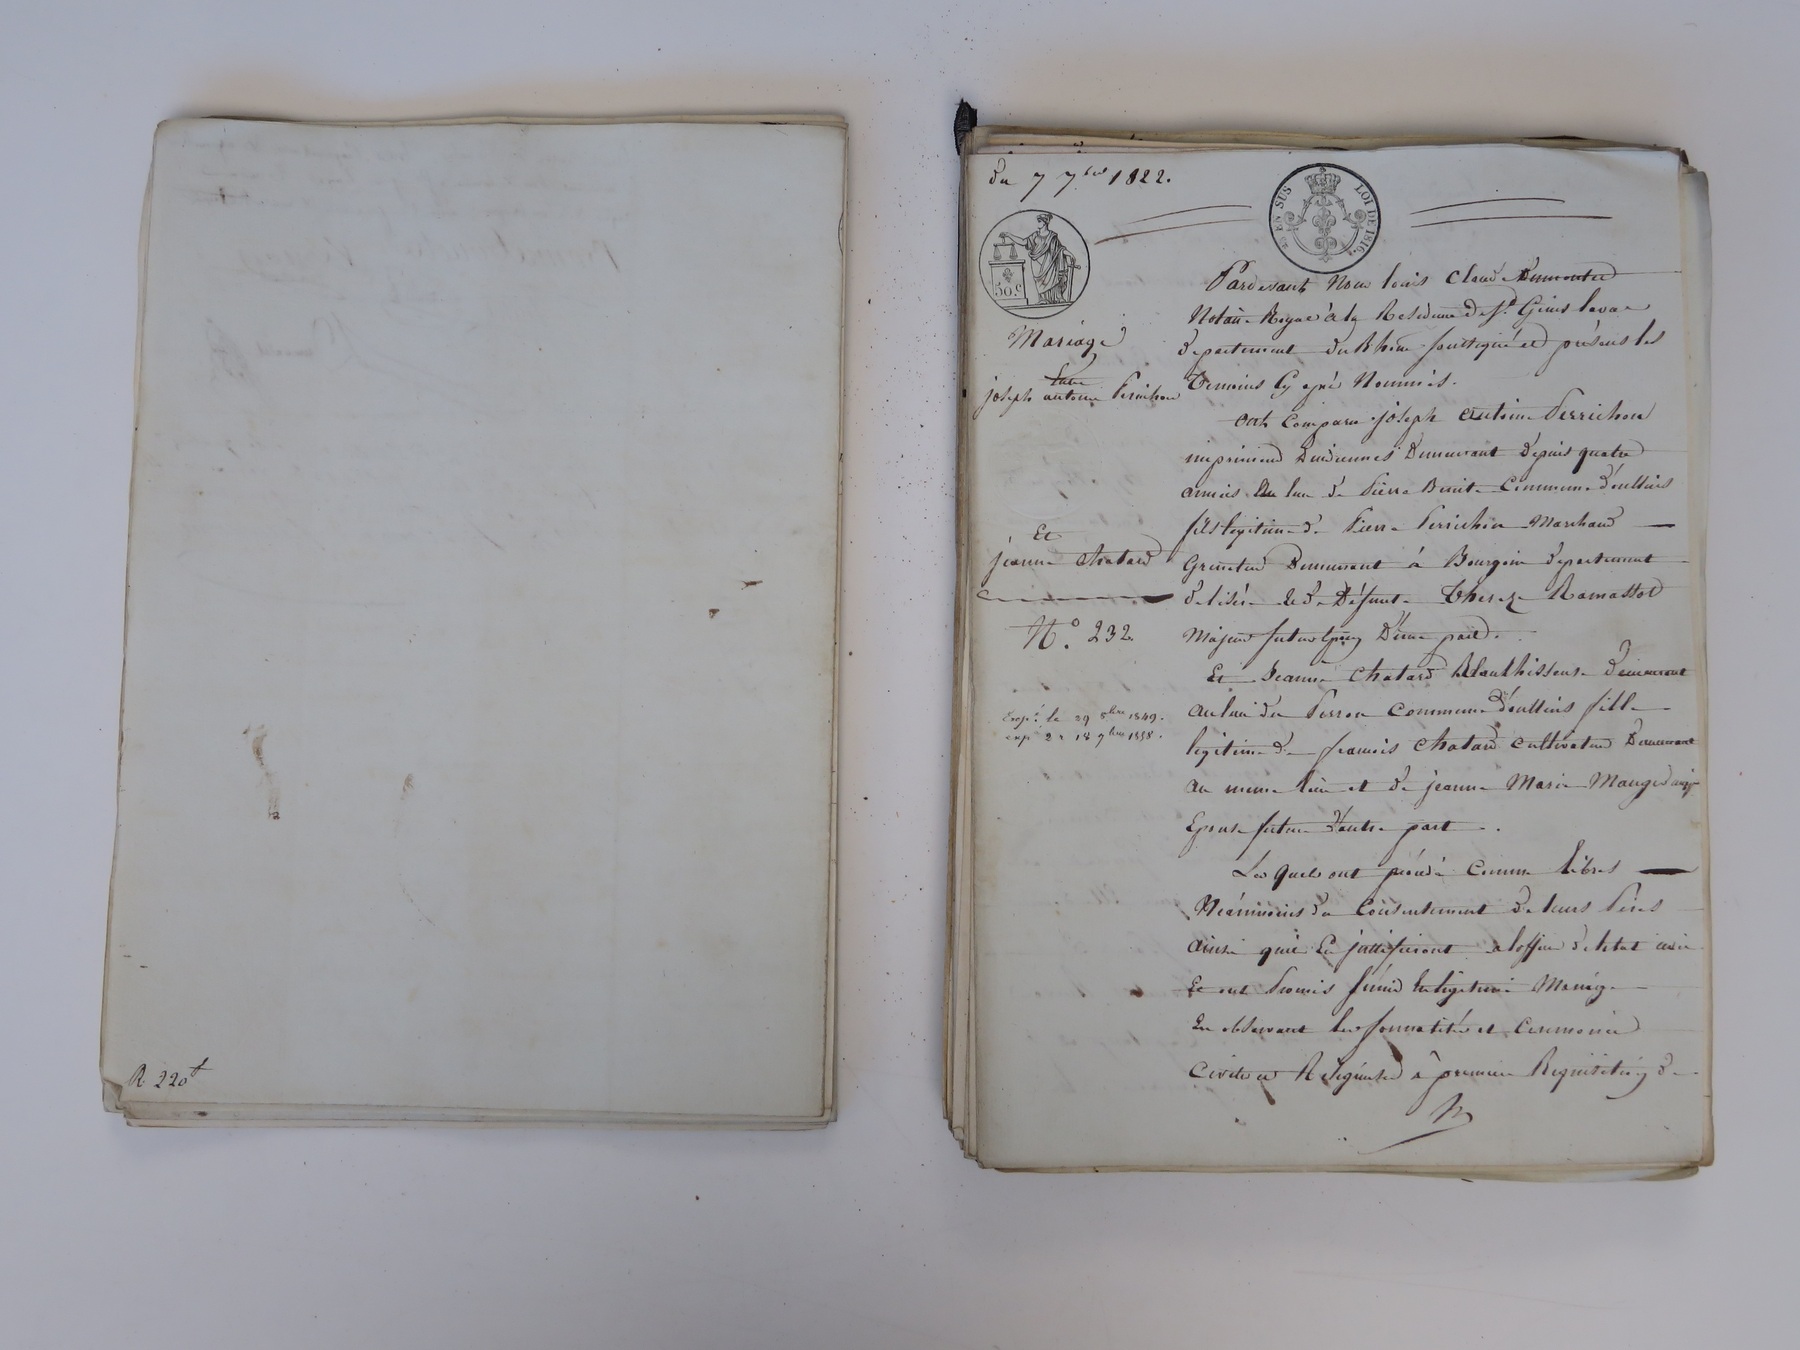 R. 220
du 7 7bre 1822.
EN SUS LOI DE 1816.
50.c
Mariage
Entre
joseph antoine Perrichon
Et
jeanne chatard
N.o 232.
Exp.é le 29 8bre 1849.
exp 2e 18 9bre 1858.
Pardevant Nous louis Claude Dumontet
Notaire Royal à la Residence de St. Genis laval
departement du Rhône soussigné et présens les
temoins Cy après Nommés.
ont comparu joseph antoine Perrichon
imprimeur d'indiennes demeurant depuis quatre
années au lieu de Pierre Benite commune d'oullins
fils légitime de Pierre Perrichon Marchand
Grenetier demeurant à Bourgoin departement
de lisère et de défunte Thereze Ramassot
Majeur futur Epoux d'une part.
Et Jeanne chatard Blanchisseuse demeurant
au lieu du Perron commune d'oullins fille
legitime de francois chatard cultivateur demeurant
au meme lieu et de jeanne Marie
Epouse future d'autre part.
Les quels ont procédé comme libres
Néanmoins du consentement de leurs Pères
ainsi qu'ils En justifieront a loffice de letat civil
Et ont Promis s'unir En légitime Mariage
En observant les formalités et Ceremonies
Civiles et Religieuses à premiere Requisition de